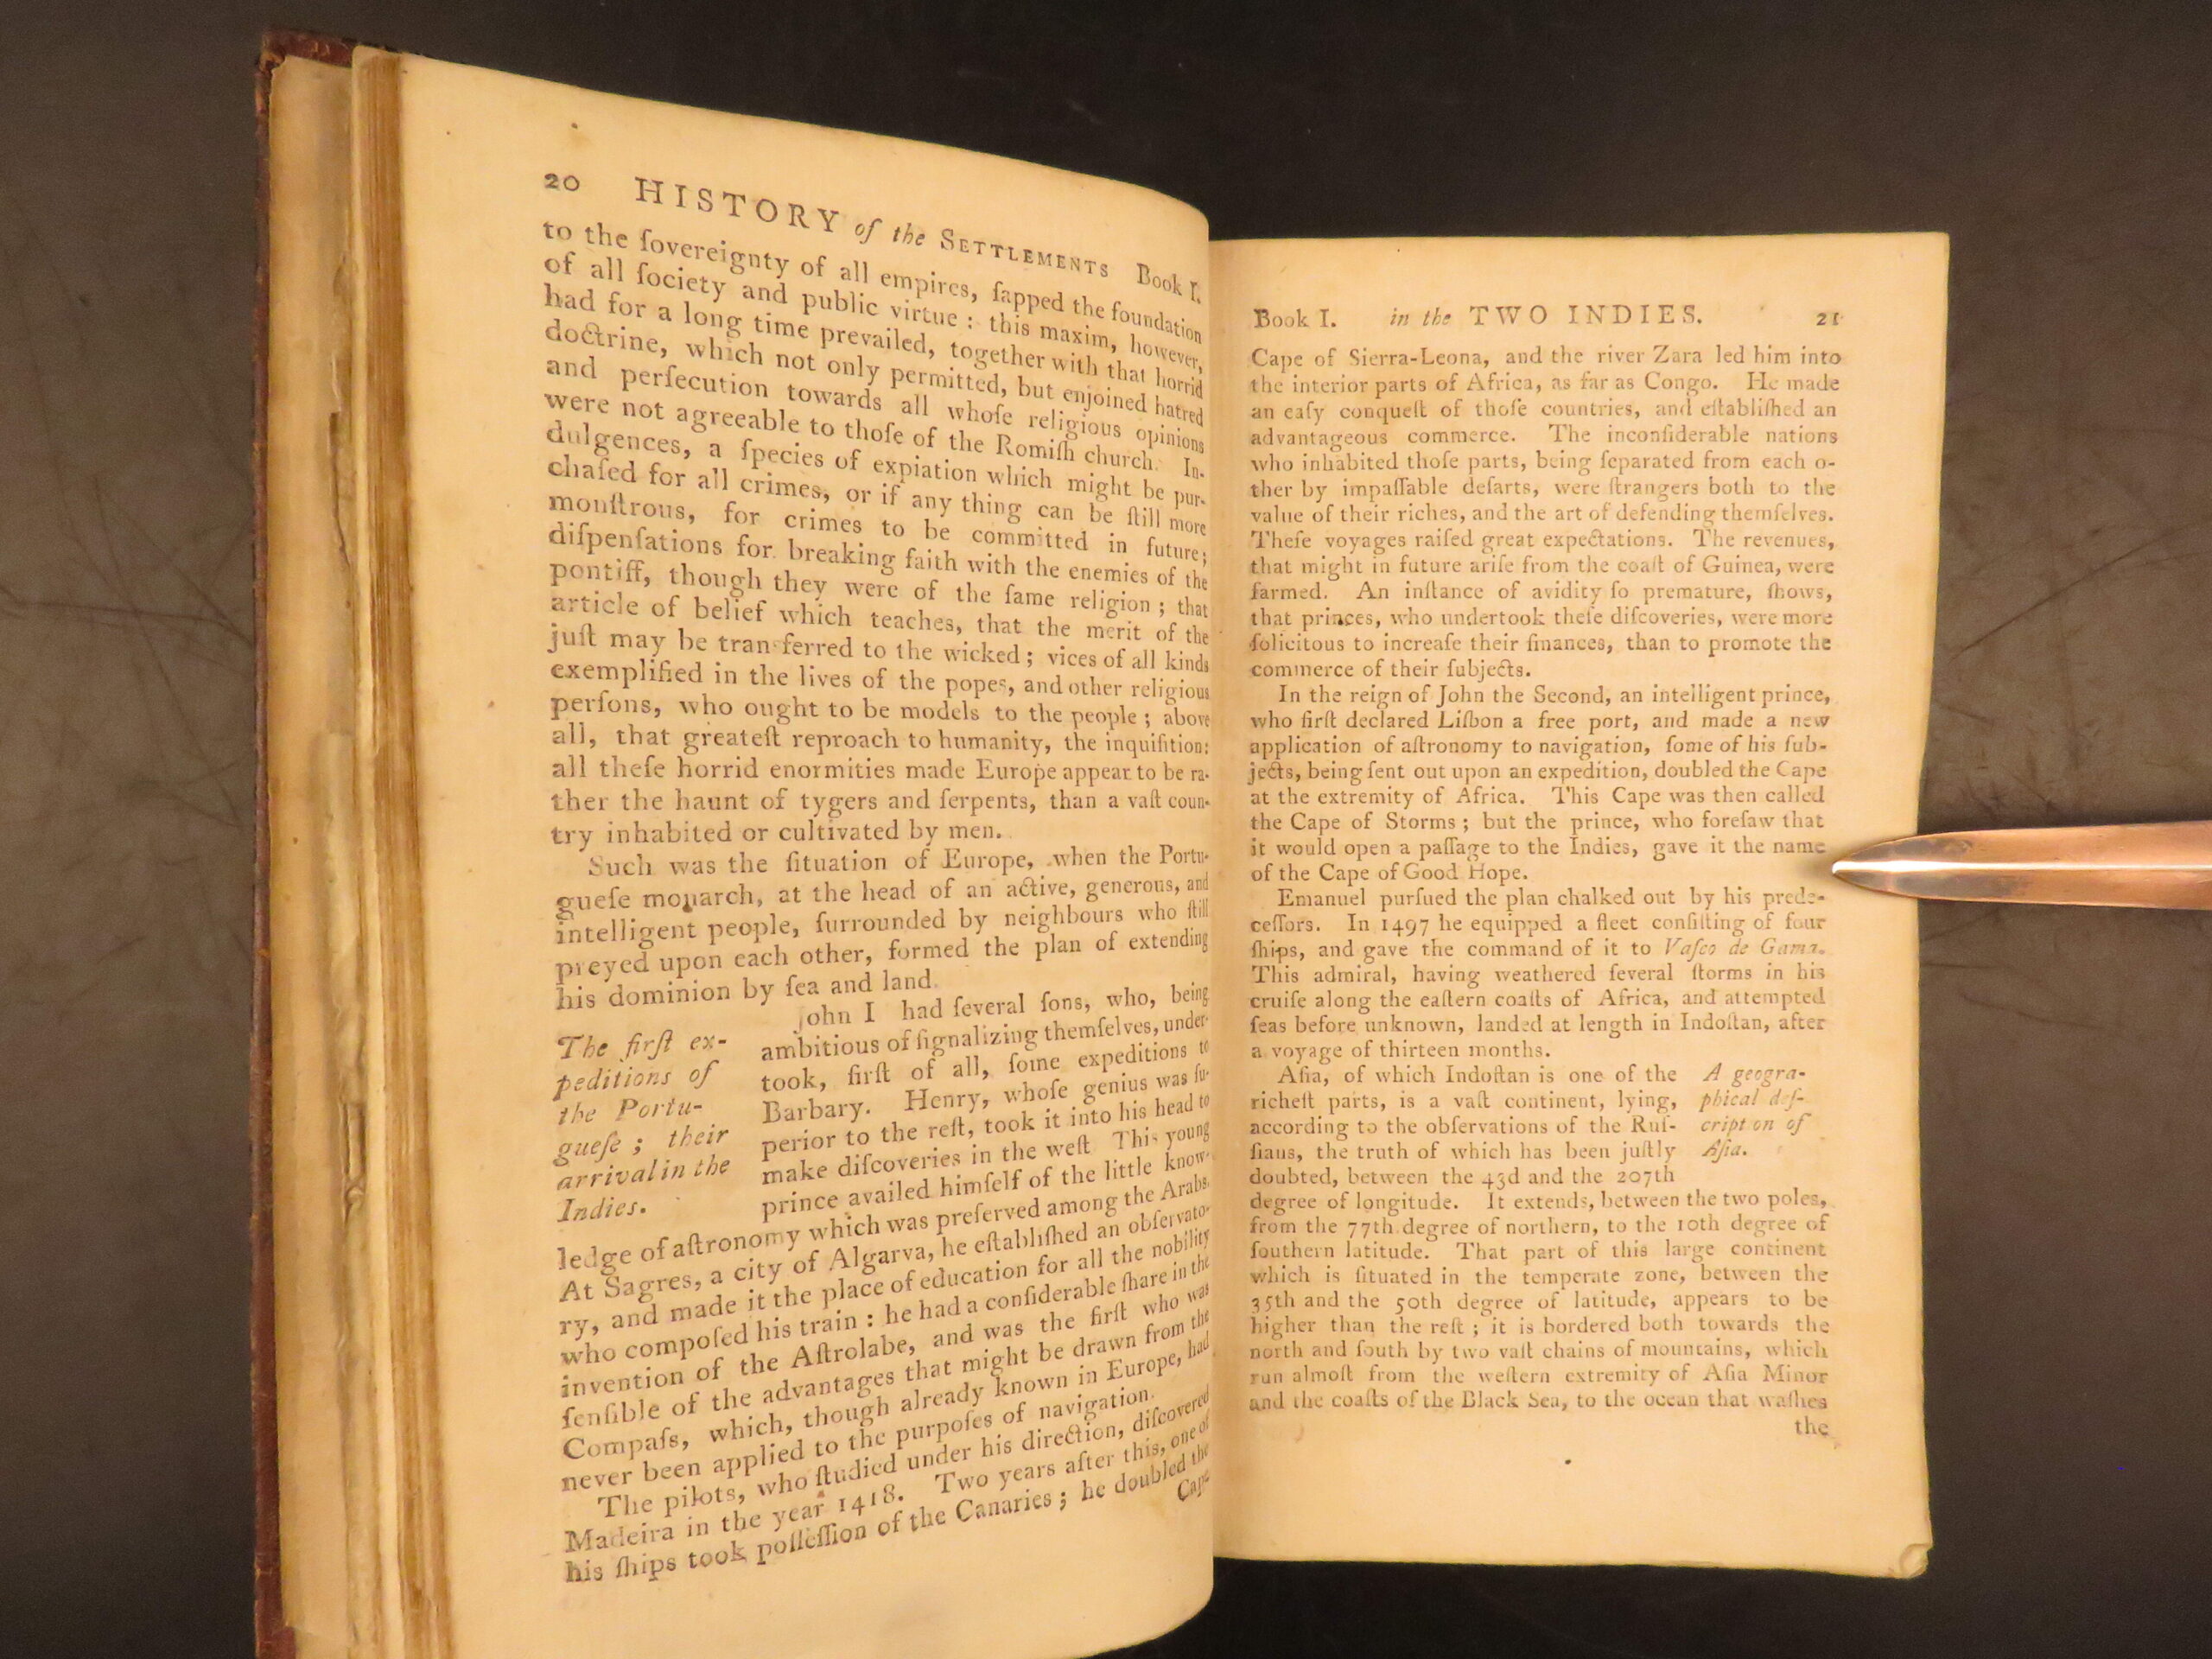 20 HISTORY of the SETTLEMENTS Book I.
to the ſovereignty of all empires, ſapped the foundation
of all ſociety and public virtue : this maxim, however,
had for a long time prevailed, together with that horrid
doctrine, which not only permitted, but enjoined hatred
and perſecution towards all whoſe religious opinions
were not agreeable to thoſe of the Romiſh church. In-
dulgences, a ſpecies of expiation which might be pur-
chaſed for all crimes, or if any thing can be ſtill more
monſtrous, for crimes to be committed in future;
diſpenſations for breaking faith with the enemies of the
pontiff, though they were of the ſame religion ; that
article of belief which teaches, that the merit of the
juſt may be transferred to the wicked ; vices of all kinds
exemplified in the lives of the popes, and other religious
perſons, who ought to be models to the people ; above
all, that greateſt reproach to humanity, the inquiſition:
all theſe horrid enormities made Europe appear to be ra-
ther the haunt of tygers and ſerpents, than a vaſt coun-
try inhabited or cultivated by men.
Such was the ſituation of Europe, when the Portu-
gueſe monarch, at the head of an active, generous, and
intelligent people, ſurrounded by neighbours who ſtill
preyed upon each other, formed the plan of extending
his dominion by ſea and land.
The firſt ex-
peditions of
the Portu-
gueſe ; their
arrival in the
Indies.
John I had ſeveral ſons, who, being
ambitious of ſignalizing themſelves, under-
took, firſt of all, ſome expeditions to
Barbary. Henry, whoſe genius was ſu-
perior to the reſt, took it into his head to
make diſcoveries in the weſt This young
prince availed himſelf of the little know-
ledge of aſtronomy which was preſerved among the Arabs.
At Sagres, a city of Algarva, he eſtabliſhed an obſervato-
ry, and made it the place of education for all the nobility
who compoſed his train : he had a conſiderable ſhare in the
invention of the Aſtrolabe, and was the firſt who was
ſenſible of the advantages that might be drawn from the
Compaſs, which, though already known in Europe, had
never been applied to the purpoſes of navigation.
The pilots, who ſtudied under his direction, diſcovered
Madeira in the year 1418. Two years after this, one of
his ſhips took poſſeſſion of the Canaries ; he doubled the
Cape
Book I. in the TWO INDIES. 21
Cape of Sierra-Leona, and the river Zara led him into
the interior parts of Africa, as far as Congo. He made
an eaſy conqueſt of thoſe countries, and eſtabliſhed an
advantageous commerce. The inconſiderable nations
who inhabited thoſe parts, being ſeparated from each o-
ther by impaſſable deſarts, were ſtrangers both to the
value of their riches, and the art of defending themſelves.
Theſe voyages raiſed great expectations. The revenues,
that might in future ariſe from the coaſt of Guinea, were
farmed. An inſtance of avidity ſo premature, ſhows,
that princes, who undertook theſe diſcoveries, were more
ſolicitous to increaſe their finances, than to promote the
commerce of their ſubjects.
In the reign of John the Second, an intelligent prince,
who firſt declared Liſbon a free port, and made a new
application of aſtronomy to navigation, ſome of his ſub-
jects, being ſent out upon an expedition, doubled the Cape
at the extremity of Africa. This Cape was then called
the Cape of Storms ; but the prince, who foreſaw that
it would open a paſſage to the Indies, gave it the name
of the Cape of Good Hope.
Emanuel purſued the plan chalked out by his prede-
ceſſors. In 1497 he equipped a fleet conſiſting of four
ſhips, and gave the command of it to Vaſco de Gama.
This admiral, having weathered ſeveral ſtorms in his
cruiſe along the eaſtern coaſts of Africa, and attempted
ſeas before unknown, landed at length in Indoſtan, after
a voyage of thirteen months.
Aſia, of which Indoſtan is one of the
richeſt parts, is a vaſt continent, lying,
according to the obſervations of the Ruſ-
ſians, the truth of which has been juſtly
doubted, between the 43d and the 207th
A geogra-
phical deſ-
cription of
Aſia.
degree of longitude. It extends, between the two poles,
from the 77th degree of northern, to the 10th degree of
ſouthern latitude. That part of this large continent
which is ſituated in the temperate zone, between the
35th and the 50th degree of latitude, appears to be
higher than the reſt ; it is bordered both towards the
north and ſouth by two vaſt chains of mountains, which
run almoſt from the weſtern extremity of Aſia Minor
and the coaſts of the Black Sea, to the ocean that waſhes
the